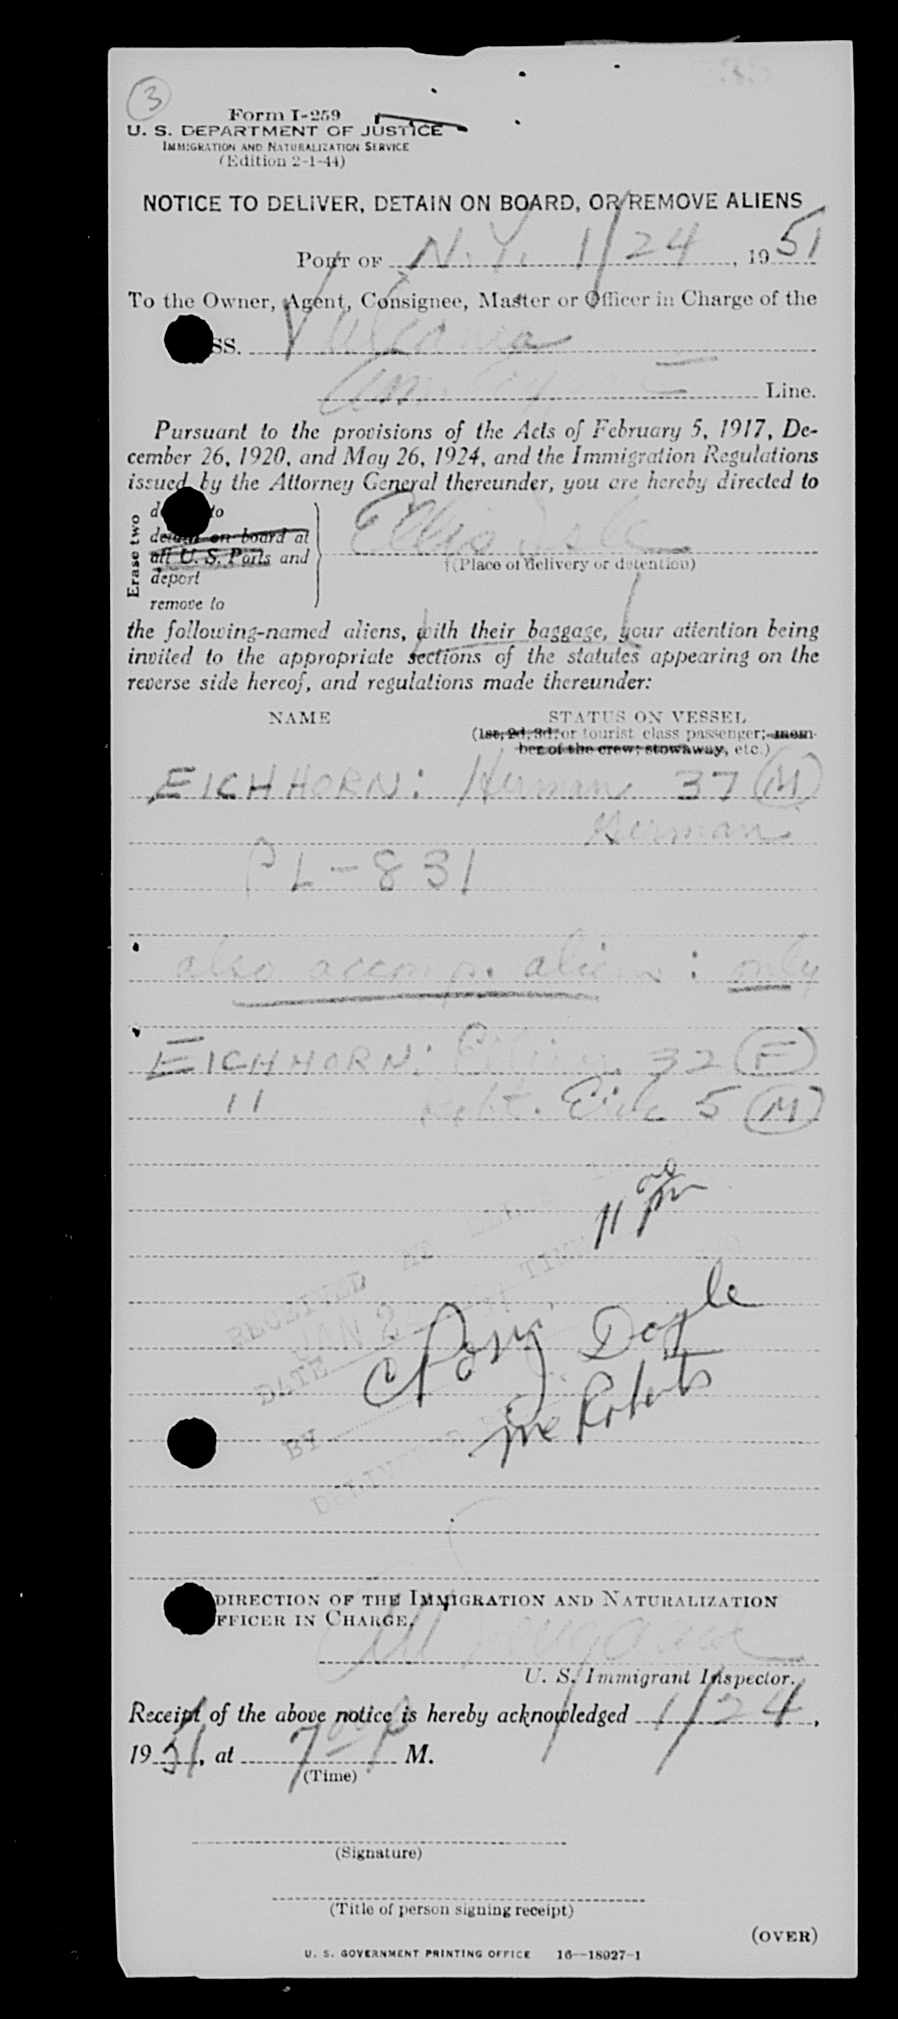 3
Form I-259
U. S. DEPARTMENT OF JUSTICE
IMMIGRATION AND NATURALIZATION SERVICE
(Edition 2-1-44)
NOTICE TO DELIVER, DETAIN ON BOARD, OR REMOVE ALIENS
PORT OF N.Y. 1/24, 1951
To the Owner, Agent, Consignee, Master or Officer in Charge of the
SS. Vulcania
Line.
Pursuant to the provisions of the Acts of February 5, 1917, De-
cember 26, 1920, and May 26, 1924, and the Immigration Regulations
issued by the Attorney General thereunder, you are hereby directed to
Erase two
to
detain on board at
all U. S. Ports and
deport
remove to
Ellis Isle
(Place of delivery or detention)
the following-named aliens, with their baggage, your attention being
invited to the appropriate sections of the statutes appearing on the
reverse side hereof, and regulations made thereunder:
NAME STATUS ON VESSEL
(1st, 2d, 3d, or tourist class passenger; mem-
ber of the crew; stowaway, etc.)
EICHHORN: Herman 37 (M)
German
PL-831
also accomp. aliens: only
EICHHORN: 32 (F)
11 Robt. Eric 5 (M)
11 00 pm
RECEIVED AT ELLIS
TIME
JAN 2
DATE
BY
Doyle
Roberts
DIRECTION OF THE IMMIGRATION AND NATURALIZATION
FFICER IN CHARGE,
U. S. Immigrant Inspector.
Receipt of the above notice is hereby acknowledged 1/24,
1951, at 7 00 P M.
(Time)
(Signature)
(Title of person signing receipt)
(OVER)
U. S. GOVERNMENT PRINTING OFFICE 16—18027-1